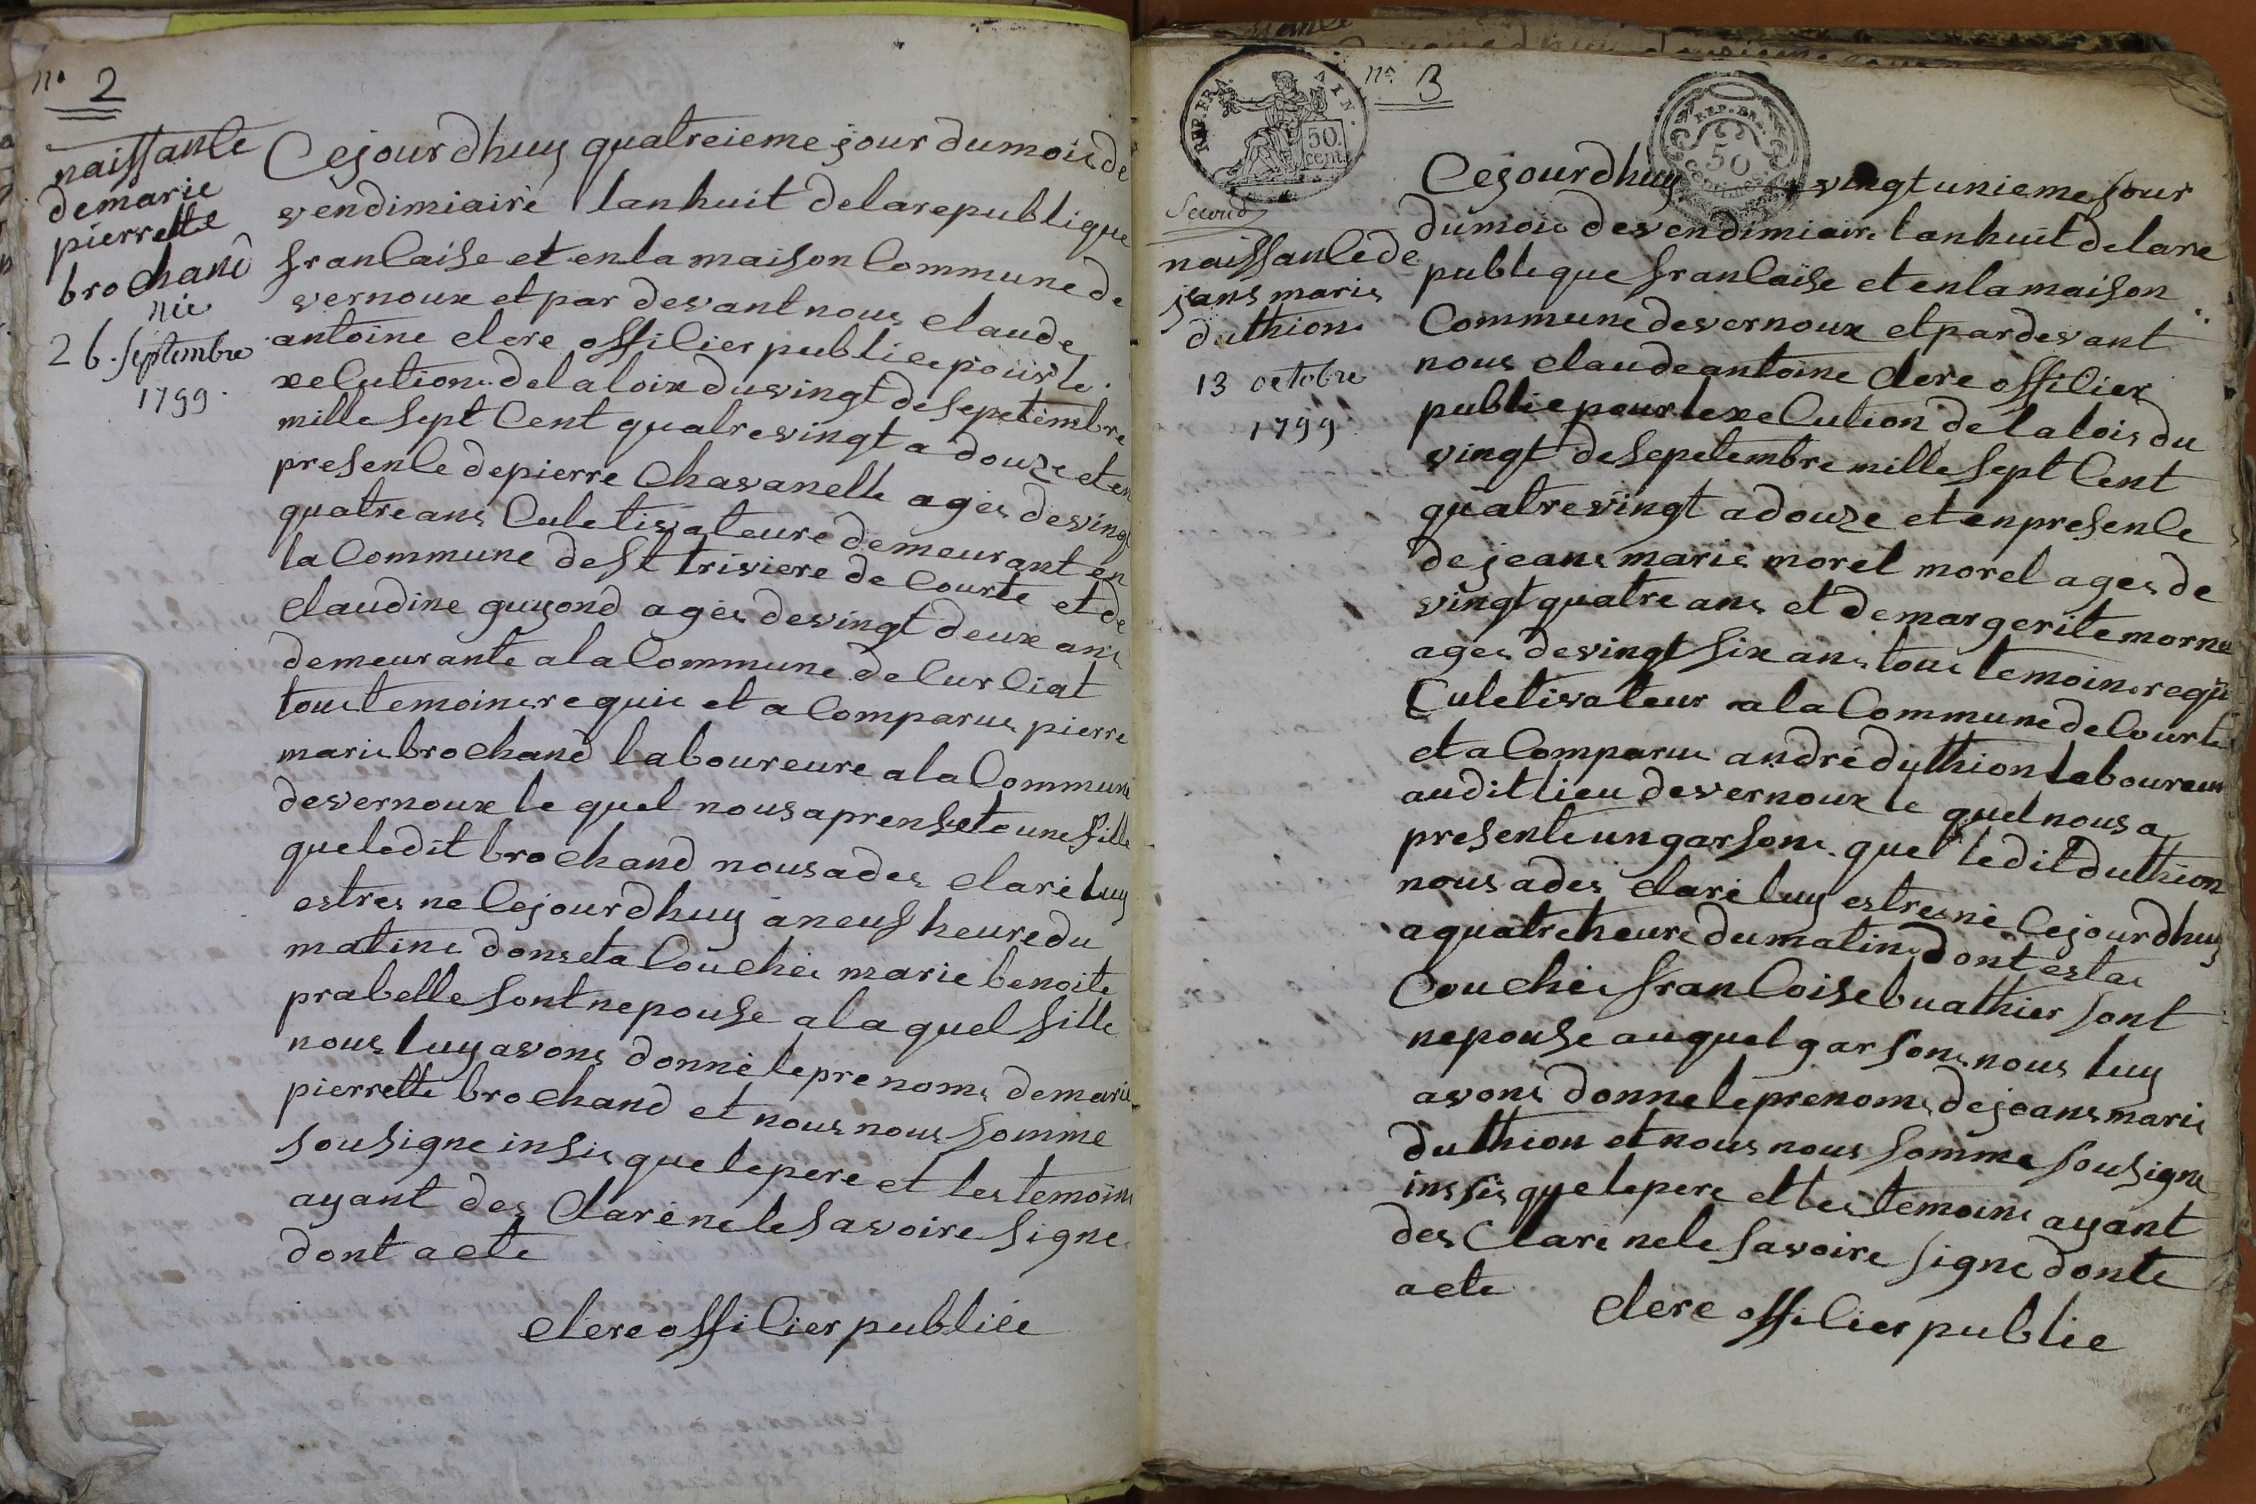 n° 2
naissance
demarie
pierrette
brochand
née
26. septembre
1799.
Cejourdhuy quatreieme jour dumois de
vendimiaire lanhuit delarepublique
francaise et enla maison Commune de
vernoux et par devant nous claude
antoine clere officier publice pour le
xecution delaloix duvingt desepetembre
mille sept Cent quatrevingt a douze et en
presence depierre Chavanelle ages devingt
quatreans Culetivateure demeurant en
la Commune de St trivière de Courte et de
claudine guyond ages devingt deux ans
demeurante ala Commune de Curciat
tous temoins requis et a Comparue pierre
marie brochand laboureure ala Commune
devernoux le quel nous a prensete une fille
queledit brochand nousades claré luy
estres ne Cejourdhuy à neuf heure du
matin donseta Couchée marie benoite
prabelle sont nepouse alaquel fille
nous luy avons donné leprenom demarie
pierrette brochand et nous nous somme
sousigne insis que lepere et les temoins
ayant des Claré ne le savoire signe
dont acte
clere officier publice
REP. FRA.
50
cent
n° 3
REP. FRA.
50
Second
naissance de
jans marie
duthion
13 octobre
1799
Cejourdhuy vingtunieme jour
dumois devendimiaire lanhuit delare
publique francaise et enlamaison
Commune devernoux et pardevant
nous claudeantoine clere officier
publice pour lexecution delalois du
vingt desepetembre mille sept Cent
quatrevingt adouze et enpresence
dejeans marie morel morel ages de
vingtquatre ans et demargerite mornu
ages devingt six ans tous temoins requi
Culetivateur ala Commune de Courte
et a Comparue andré duthion laboureur
audit lieu devernoux le quel nous a
presente un garson que ledit duthion
nous ades claré luy estres né Cejourdhuy
a quatreheure dumatin dont esta
Couchée francoise buathier sont
nepouse auquel garsons nous luy
avons donneleprenoms dejeans marie
duthion et nous nous somme sousigne
insis que lepere et les temoins ayant
des Claré nele savoire signe donte
acte
clere officier publice